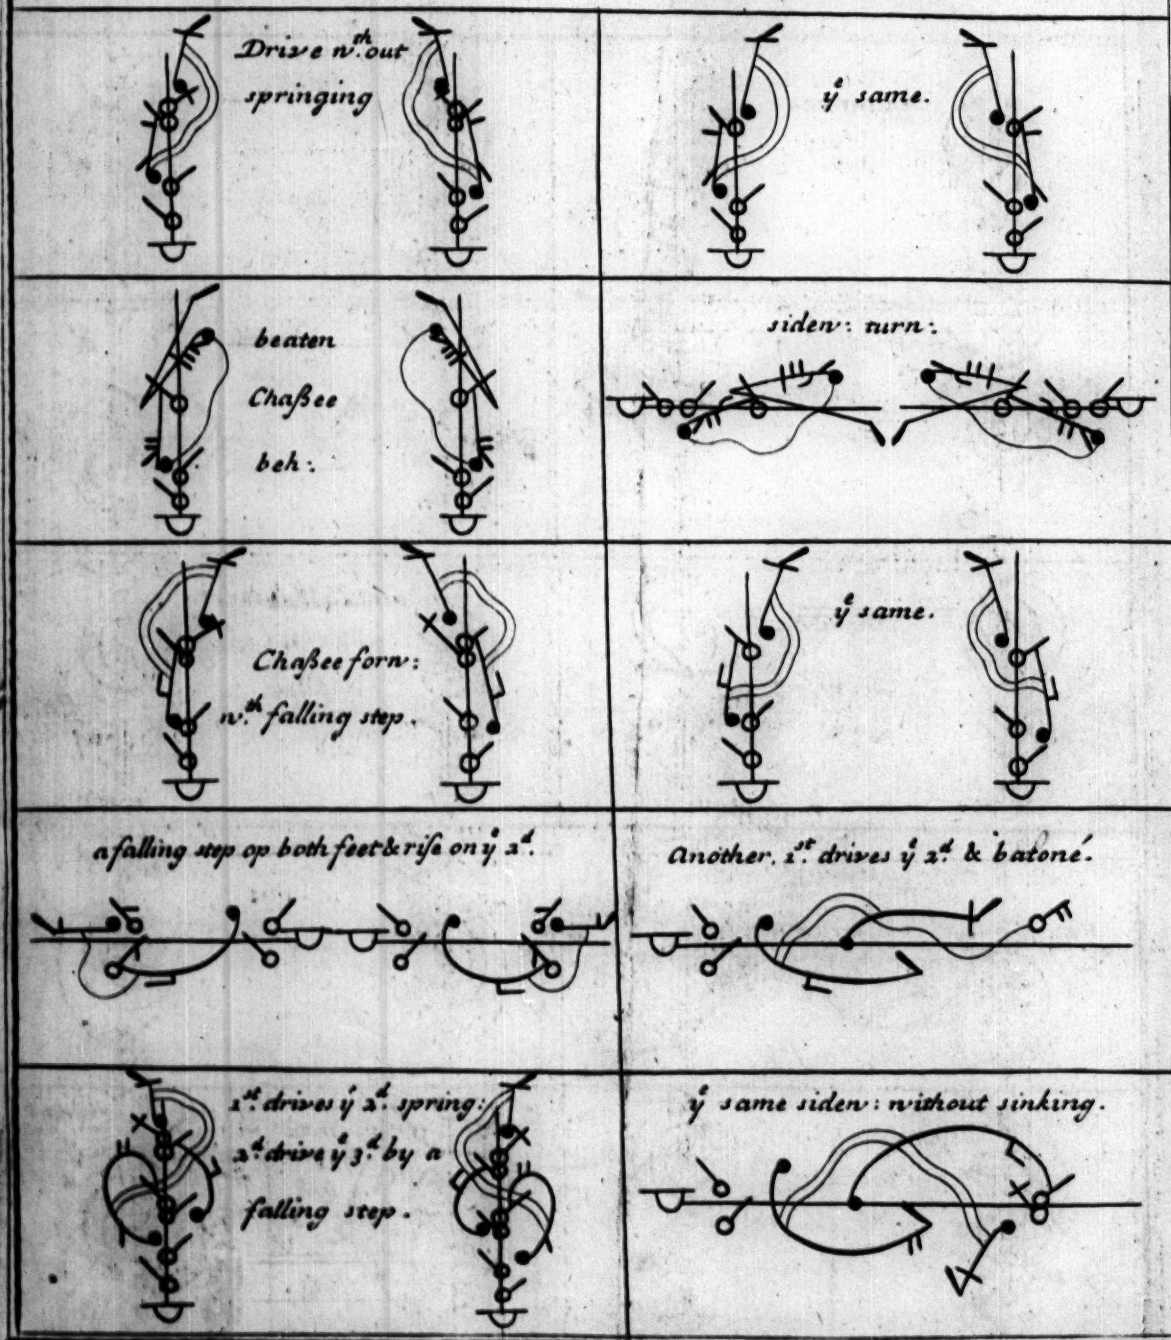 Drive wth. out
springing
ye same.
beaten
Chaßee
beh:.
siden: turn:.
Chaßee forw:
wth. falling step.
ye same.
a falling step op both feet & rise on ye 2d.
Another. 1st. drives ye 2d. & batoné.
1st. drives ye 2d. spring:
2d. drive ye 3d. by a
falling step.
ye same siden: without sinking.